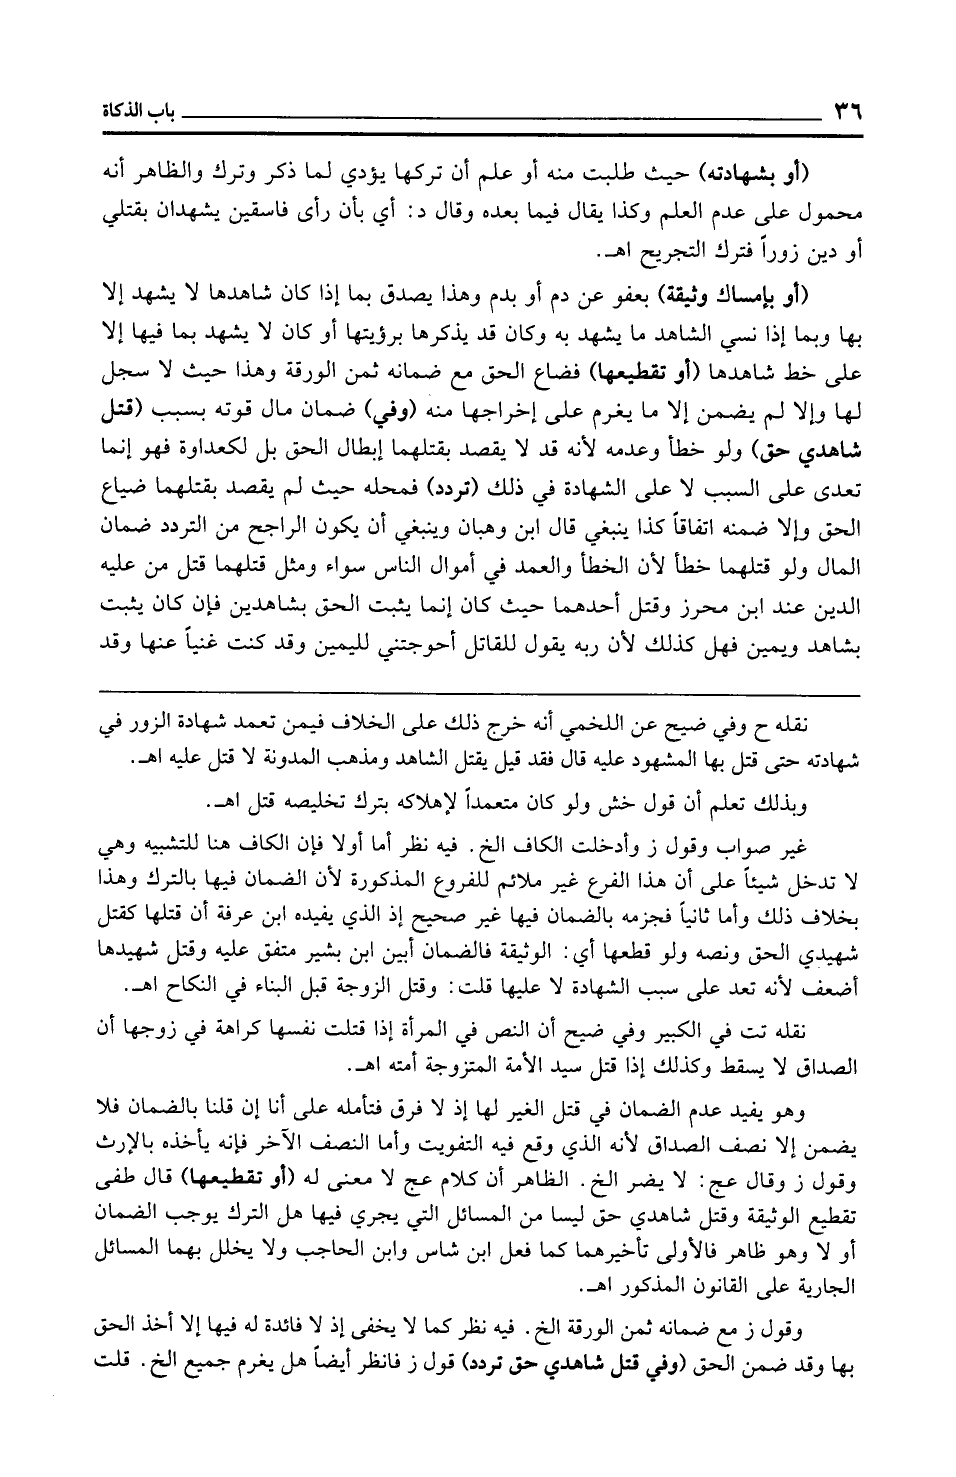 ٣٦ باب الذكاة
(أو بشهادته) حيث طلبت منه أو علم أن تركها يؤدي لما ذكر وترك والظاهر أنه
محمول على عدم العلم وكذا يقال فيما بعده وقال د: أي بأن رأى فاسقين يشهدان بقتلي
أو دين زوراً فترك التجريح اهـ.
(أو بإمساك وثيقة) بعفو عن دم أو بدم وهذا يصدق بما إذا كان شاهدها لا يشهد إلا
بها وبما إذا نسي الشاهد ما يشهد به وكان قد يذكرها برؤيتها أو كان لا يشهد بما فيها إلا
على خط شاهدها (أو تقطيعها) فضاع الحق مع ضمانه ثمن الورقة وهذا حيث لا سجل
لها وإلا لم يضمن إلا ما يغرم على إخراجها منه (وفي) ضمان مال فوته بسبب (قتل
شاهدي حق) ولو خطأ وعدمه لأنه قد لا يقصد بقتلهما إبطال الحق بل لكعداوة فهو إنما
تعدى على السبب لا على الشهادة في ذلك (تردد) فمحله حيث لم يقصد بقتلهما ضياع
الحق وإلا ضمنه اتفاقاً كذا ينبغي قال ابن وهبان وينبغي أن يكون الراجح من التردد ضمان
المال ولو قتلهما خطأ لأن الخطأ والعمد في أموال الناس سواء ومثل قتلهما قتل من عليه
الدين عند ابن محرز وقتل أحدهما حيث كان إنما يثبت الحق بشاهدين فإن كان يثبت
بشاهد ويمين فهل كذلك لأن ربه يقول للقاتل أحوجتني لليمين وقد كنت غنياً عنها وقد
نقله ح وفي ضيح عن اللخمي أنه خرج ذلك على الخلاف فيمن تعمد شهادة الزور في
شهادته حتى قتل بها المشهود عليه قال فقد قيل يقتل الشاهد ومذهب المدونة لا قتل عليه اهـ.
وبذلك تعلم أن قول خش ولو كان متعمداً لإهلاكه بترك تخليصه قتل اهـ.
غير صواب وقول ز وأدخلت الكاف الخ. فيه نظر أما أولا فإن الكاف هنا للتشبيه وهي
لا تدخل شيئاً على أن هذا الفرع غير ملائم للفروع المذكورة لأن الضمان فيها بالترك وهذا
بخلاف ذلك وأما ثانياً فجزمه بالضمان فيها غير صحيح إذ الذي يفيده ابن عرفة أن قتلها كقتل
شهيدي الحق ونصه ولو قطعها أي: الوثيقة فالضمان أبين ابن بشير متفق عليه وقتل شهيدها
أضعف لأنه تعد على سبب الشهادة لا عليها قلت: وقتل الزوجة قبل البناء في النكاح اهـ.
نقله تت في الكبير وفي ضيح أن النص في المرأة إذا قتلت نفسها كراهة في زوجها أن
الصداق لا يسقط وكذلك إذا قتل سيد الأمة المتزوجة أمته اهـ.
وهو يفيد عدم الضمان في قتل الغير لها إذ لا فرق فتأمله على أنا إن قلنا بالضمان فلا
يضمن إلا نصف الصداق لأنه الذي وقع فيه التفويت وأما النصف الآخر فإنه يأخذه بالإرث
وقول ز وقال عج: لا يضر الخ. الظاهر أن كلام عج لا معنى له (أو تقطيعها) قال طفى
تقطيع الوثيقة وقتل شاهدي حق ليسا من المسائل التي يجري فيها هل الترك يوجب الضمان
أو لا وهو ظاهر فالأولى تأخيرهما كما فعل ابن شاس وابن الحاجب ولا يخلل بهما المسائل
الجارية على القانون المذكور اهـ.
وقول ز مع ضمانه ثمن الورقة الخ. فيه نظر كما لا يخفى إذ لا فائدة له فيها إلا أخذ الحق
بها وقد ضمن الحق (وفي قتل شاهدي حق تردد) قول ز فانظر أيضاً هل يغرم جميع الخ. قلت